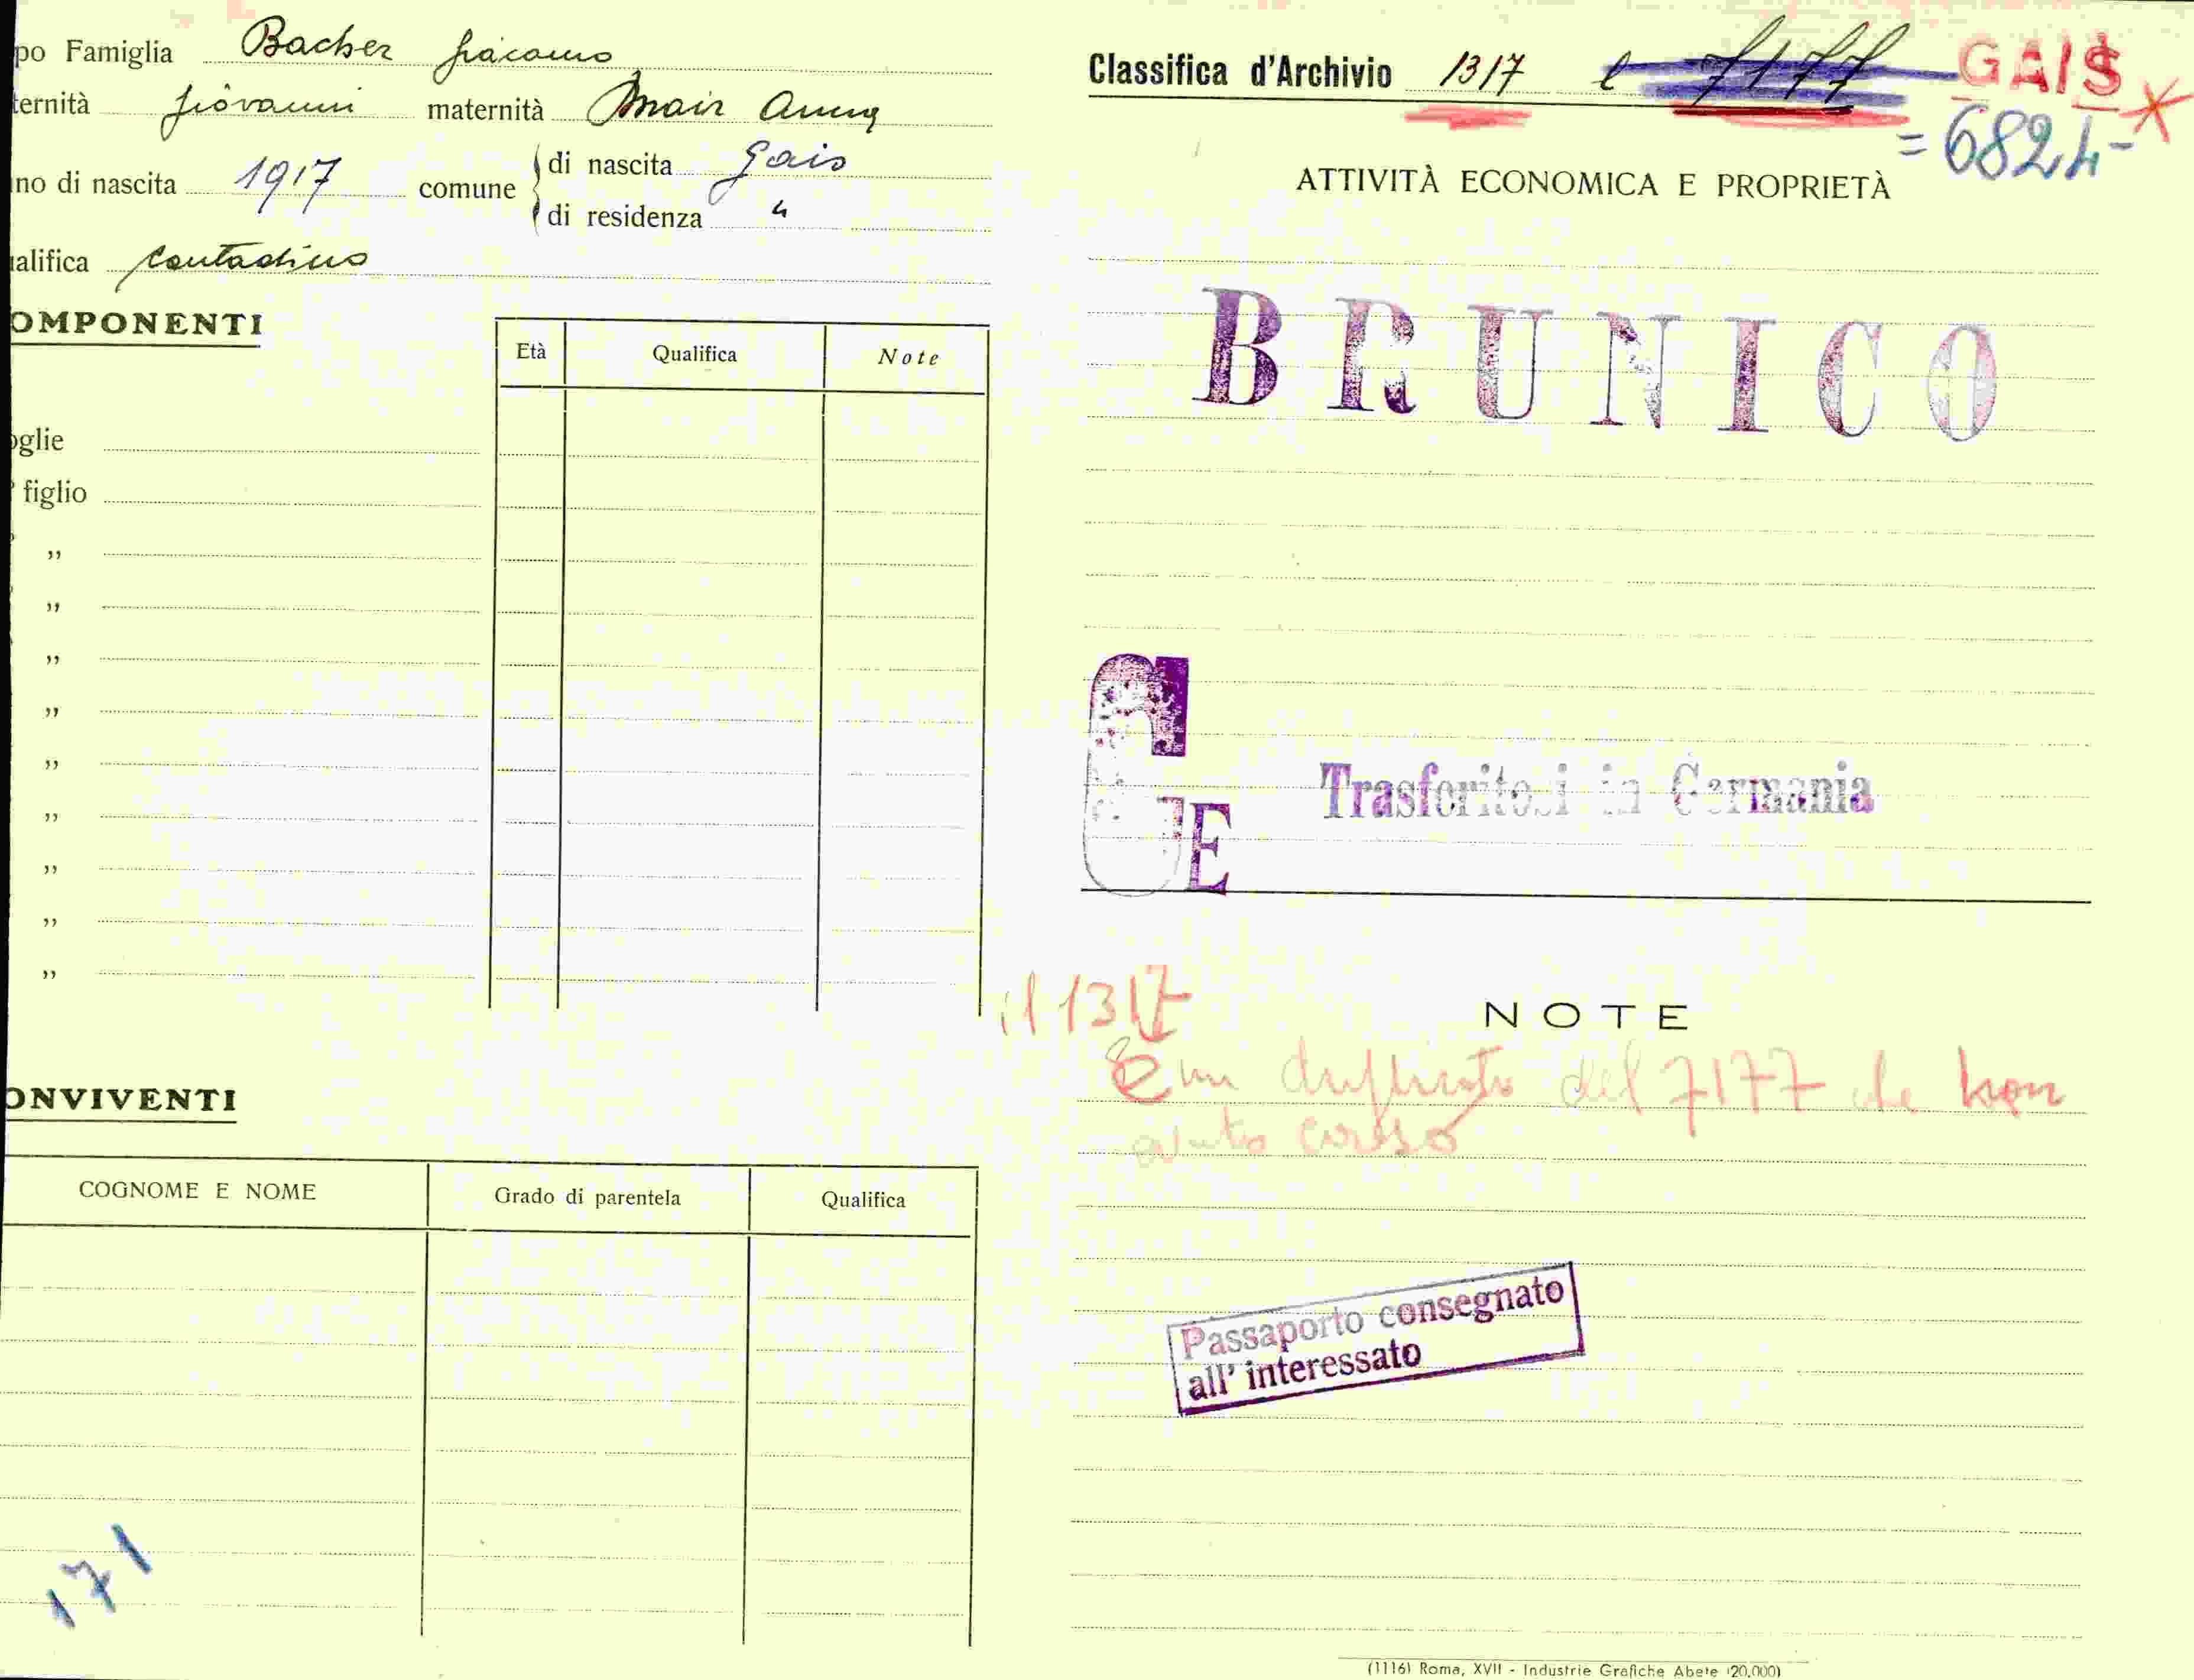 po Famiglia Bacher Giacomo
ternità Giovanni maternità Mair Anna
no di nascita 1917 comune di nascita Gais
di residenza "
alifica contadino
OMPONENTI
Età Qualifica Note
oglie
figlio
"
"
"
"
"
"
"
"
"
ONVIVENTI
COGNOME E NOME Grado di parentela Qualifica
171
Classifica d'Archivio 1317 e 7177 GAIS
= 6824-
ATTIVITÀ ECONOMICA E PROPRIETÀ
BRUNICO
E
Trasferitosi in Germania
NOTE
il 1317
è un duplicato del 7177 che non
corso
Passaporto consegnato
all' interessato
(1116) Roma, XVII - Industrie Grafiche Abete (20.000)